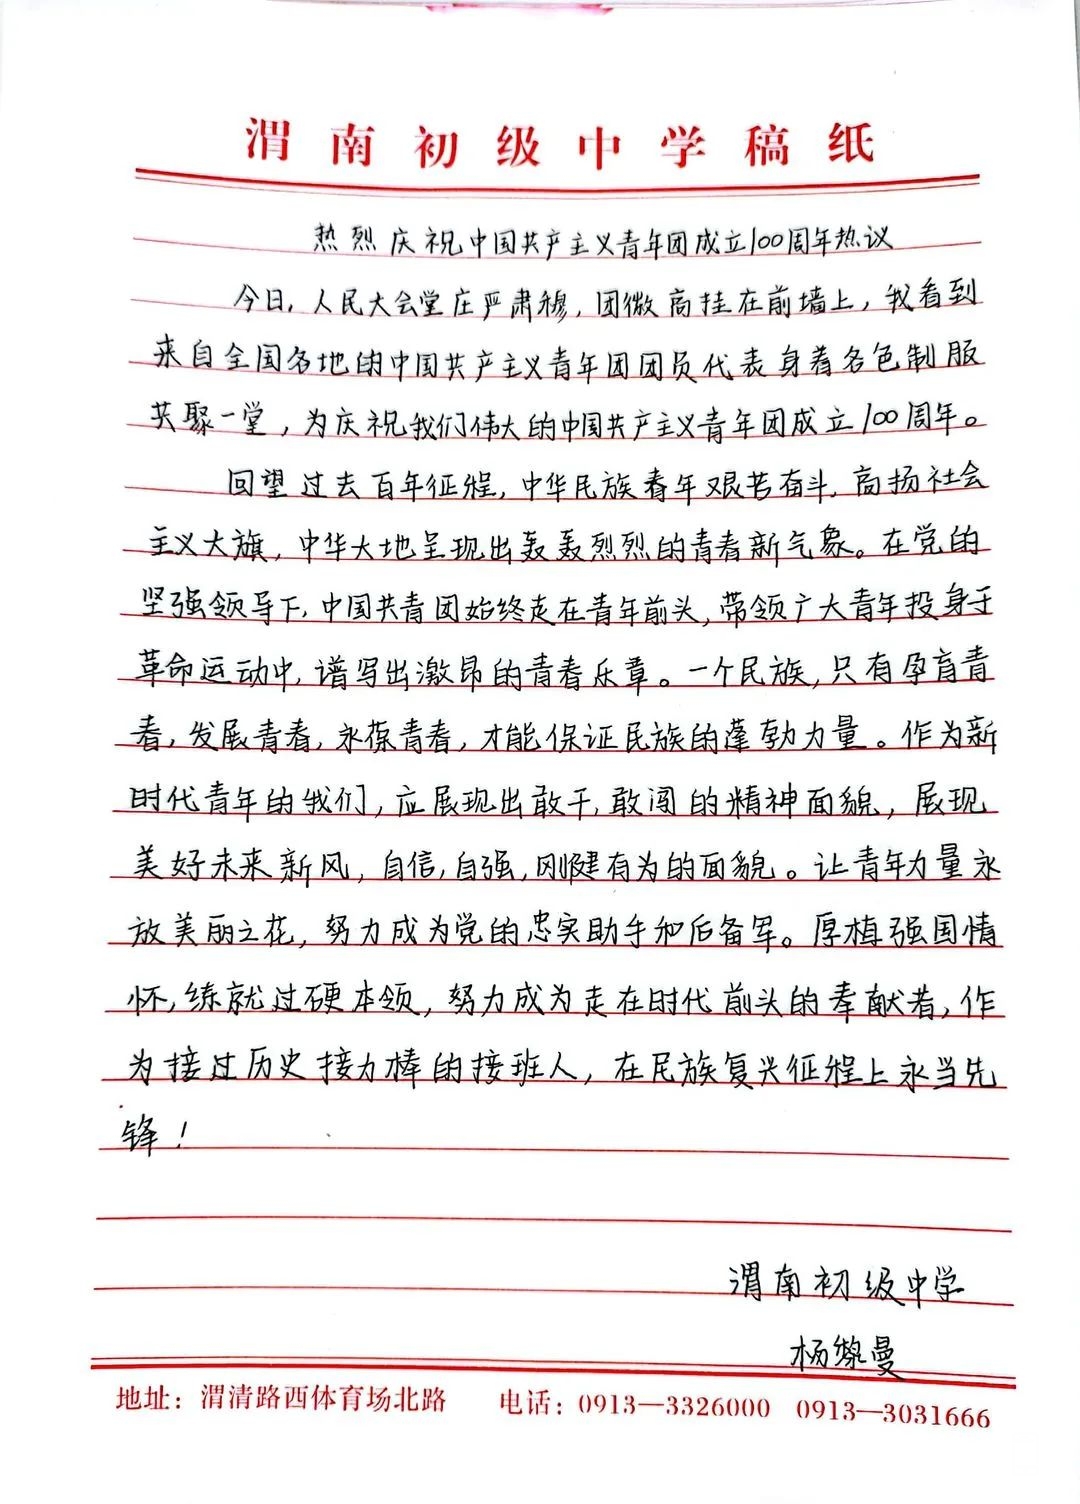 渭南初级中学稿纸
热烈庆祝中国共产主义青年团成立100周年热议
今日，人民大会堂庄严肃穆，团徽高挂在前墙上，我看到
来自全国各地的中国共产主义青年团团员代表身着各色制服
共聚一堂，为庆祝我们伟大的中国共产主义青年团成立100周年。
回望过去百年征程，中华民族青年艰苦奋斗，高扬社会
主义大旗，中华大地呈现出轰轰烈烈的青春新气象。在党的
坚强领导下，中国共青团始终走在青年前头，带领广大青年投身于
革命运动中，谱写出激昂的青春乐章。一个民族，只有孕育青
春，发展青春，永葆青春，才能保证民族的蓬勃力量。作为新
时代青年的我们，应展现出敢干，敢闯的精神面貌，展现
美好未来新风，自信，自强，刚健有为的面貌。让青年力量永
放美丽之花，努力成为党的忠实助手和后备军。厚植强国情
怀，练就过硬本领，努力成为走在时代前头的奉献者，作
为接过历史接力棒的接班人，在民族复兴征程上永当先
锋！
渭南初级中学
杨黎曼
地址：渭清路西体育场北路 电话：0913—3326000 0913—3031666